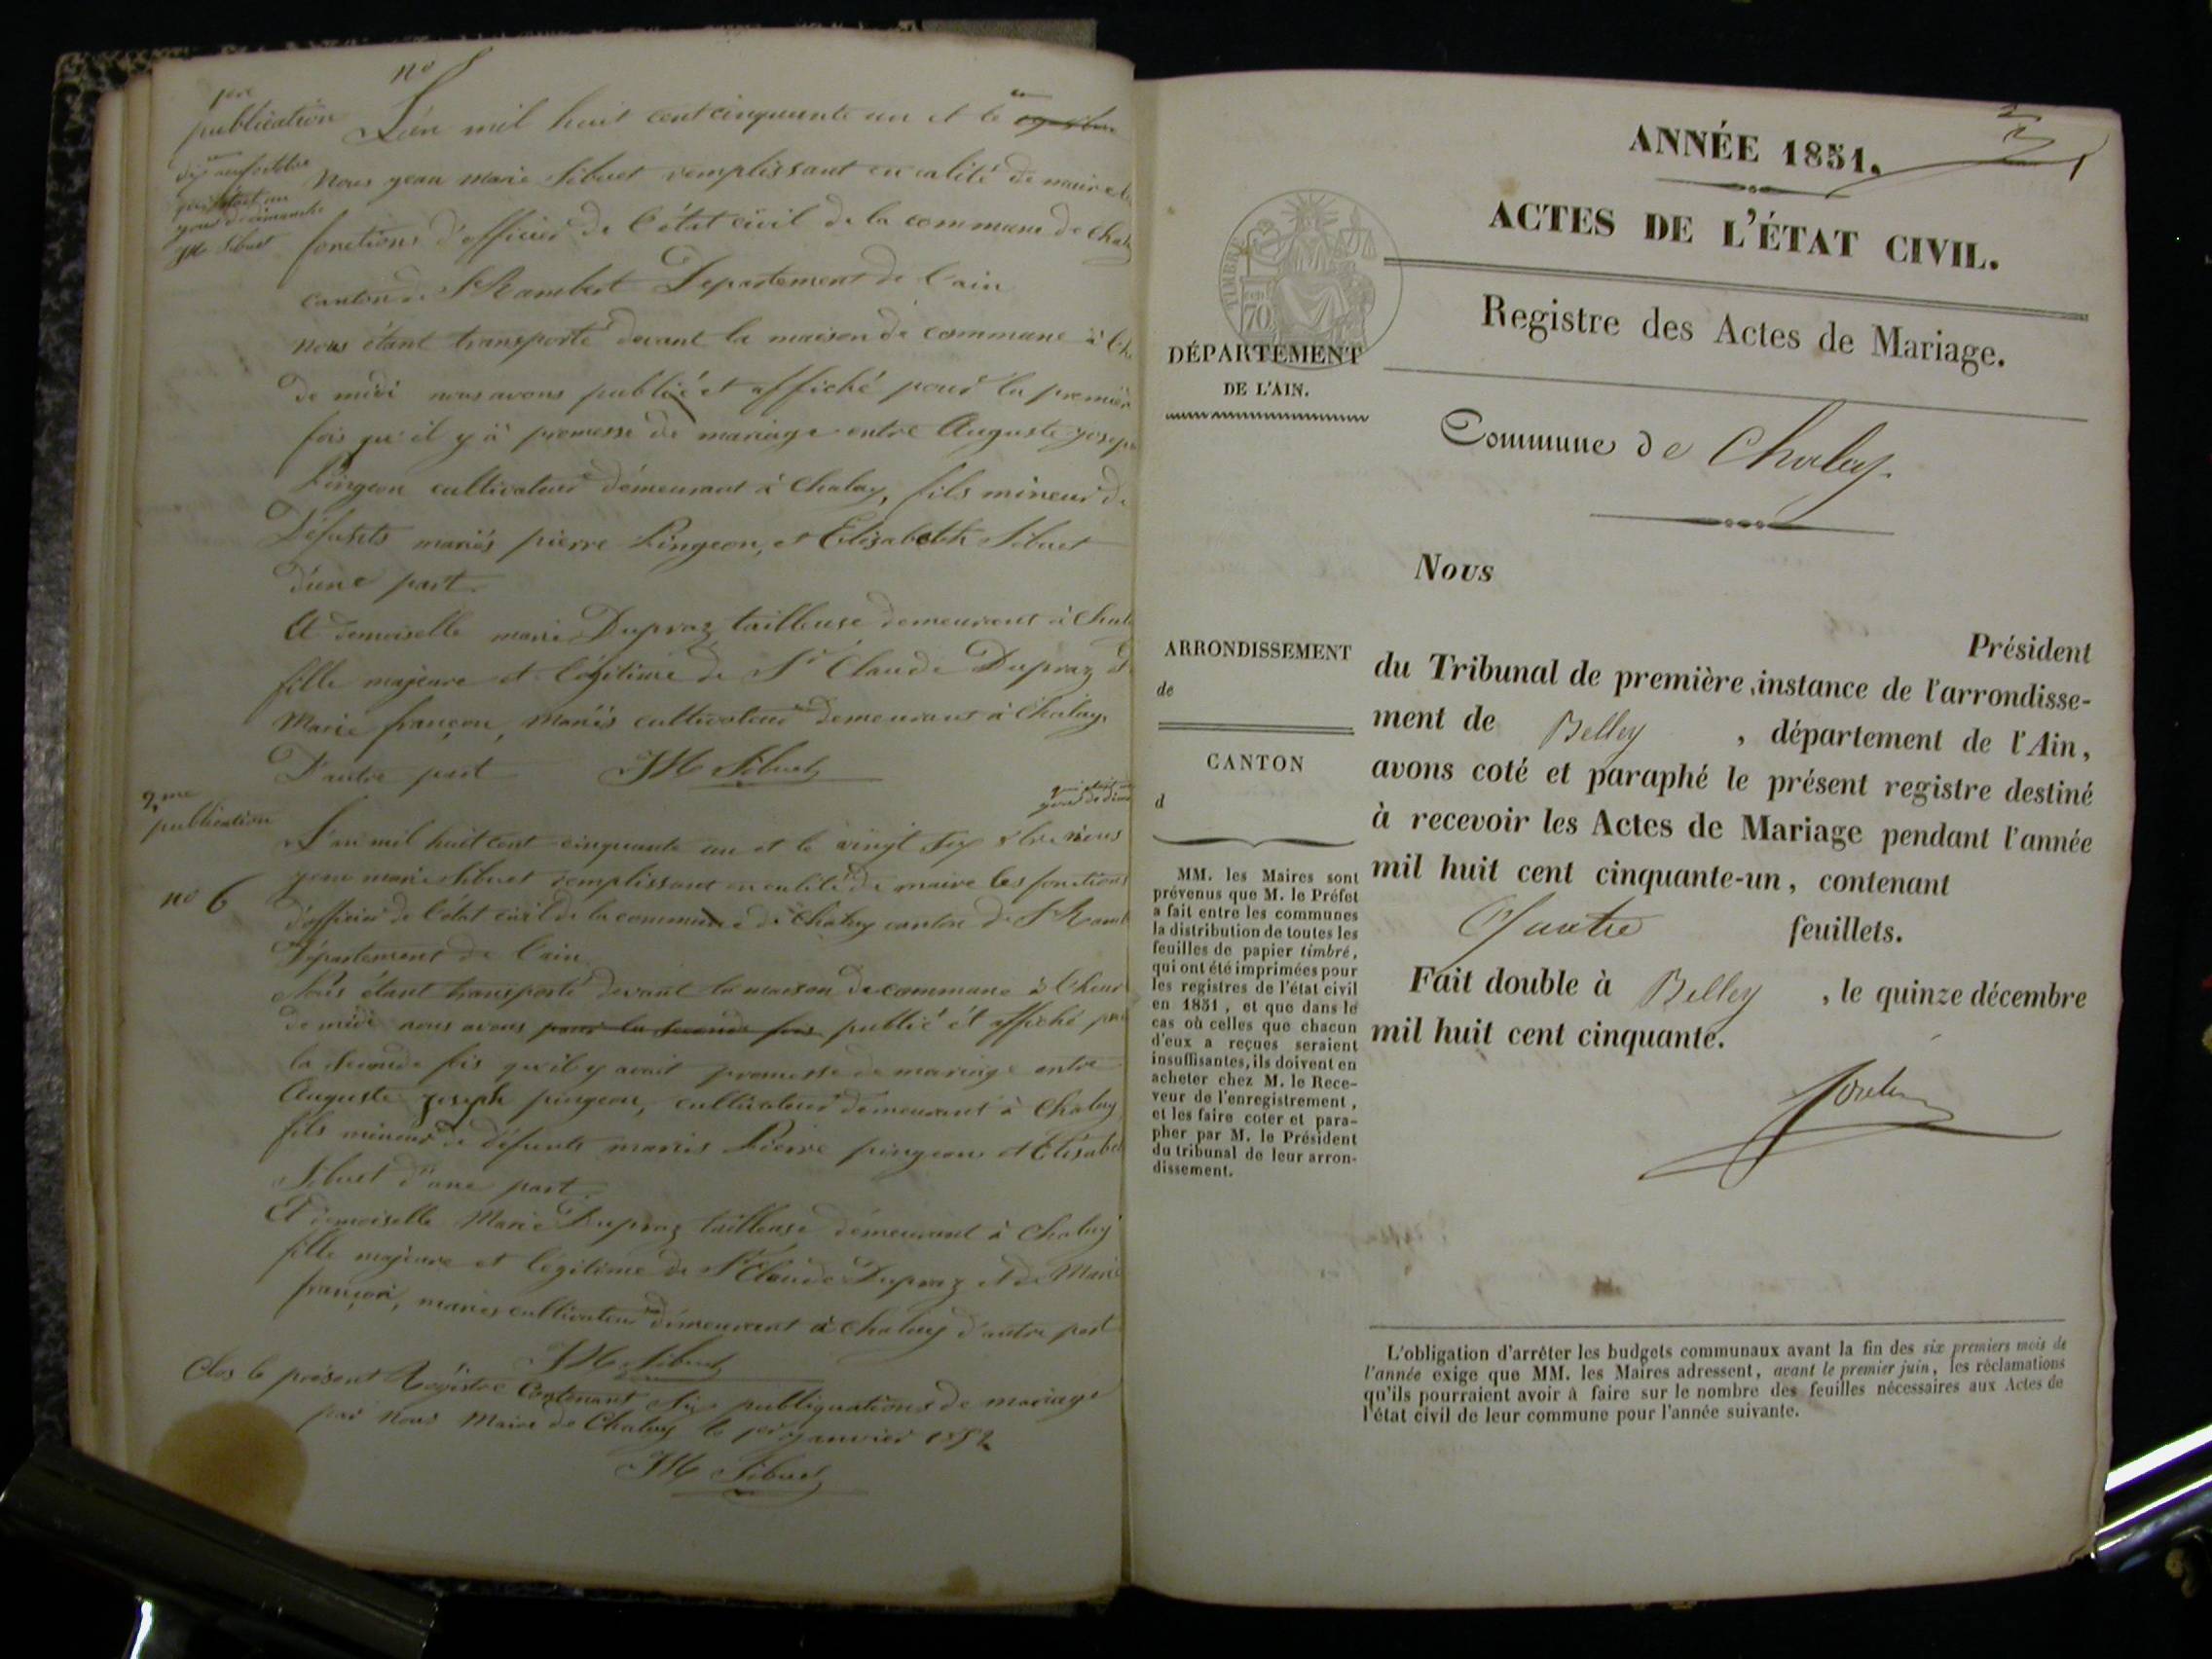 1ere
publication
no 5
L'an mil huit cent cinquante un et le
dix neuf octobre
qui était un
jour de dimanche
JM Sibuet
Nous jean marie Sibuet remplissant en calité de maire les
fonctions d'officier de l'état civil de la commune de Chal
canton de St Rambert Departement de l'ain
nous étant transporté devant la maison de commune à l'h
de midi nous avons publié et affiché pour la premier
fois qu'il y a promesse de mariage entre Auguste joseph
Pingeon cultivateur démeurant à Chalay, fils mineur de
Défunts mariés pierre Pingeon, et Elizabeth Sibuet
d'une part.
Et demoiselle marie Dupraz tailleuse demeurant à Chal
fille majeure et légitime de Sr Claude Dupraz
Marie françon, mariés cultivateurs demeurant à Chalay,
D'autre part JM Sibuet
2me
publication
qui était un
jour de dim
L'an mil huit cent cinquante un et le vingt six 8bre nous
jean marie Sibuet remplissant en calité de maire les fonctions
no 6
d'officier de l'état civil de la commune de Chalay canton de St Ramb
Département de l'ain.
Nous étant transporté devant la maison de commune à l'heure
de midi nous avons pour la seconde fois publié et affiché pour
la seconde fois qu'il y avait promesse de mariage entre
Auguste joseph pingeon, cultivateur démeurant à Chalay
fils mineur de défunts mariés Pierre pingeon et Elisabe
Sibuet d'une part.
Et demoiselle Marie Dupraz tailleuse démeurant à Chalay
fille majeure et légitime de Sr Claude Dupraz et de Marie
françon, mariés cultivateurs démeurant à Chalay d'autre part
JM Sibuet
Clos le présent Régistre Contenant Six publiquations de mariage
par nous Maire de Chalay le 1er janvier 1852
JM Sibuet
ANNÉE 1851.
ACTES DE L'ÉTAT CIVIL.
Registre des Actes de Mariage.
TIMBRE
70
DÉPARTEMENT
DE L'AIN.
Commune de Chaley.
Nous
Président
ARRONDISSEMENT
de
CANTON
d
du Tribunal de première instance de l'arrondisse-
ment de Belley , département de l'Ain,
avons coté et paraphé le présent registre destiné
à recevoir les Actes de Mariage pendant l'année
mil huit cent cinquante-un, contenant
Quatre feuillets.
Fait double à Belley , le quinze décembre
mil huit cent cinquante.
MM. les Maires sont
prévenus que M. le Préfet
a fait entre les communes
la distribution de toutes les
feuilles de papier timbré,
qui ont été imprimées pour
les registres de l'état civil
en 1851, et que dans le
cas où celles que chacun
d'eux a reçues seraient
insuffisantes, ils doivent en
acheter chez M. le Rece-
veur de l'enregistrement,
et les faire coter et para-
pher par M. le Président
du tribunal de leur arron-
dissement.
L'obligation d'arrêter les budgets communaux avant la fin des six premiers mois de
l'année exige que MM. les Maires adressent, avant le premier juin, les réclamations
qu'ils pourraient avoir à faire sur le nombre des feuilles nécessaires aux Actes de
l'état civil de leur commune pour l'année suivante.